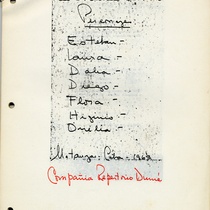 Personaje
Esteban -
Laura -
Dalia -
Diego -
Flora -
Higinio -
Orelia -
Matanzas - Cuba - 1962
Compañia Repertorio Dumé